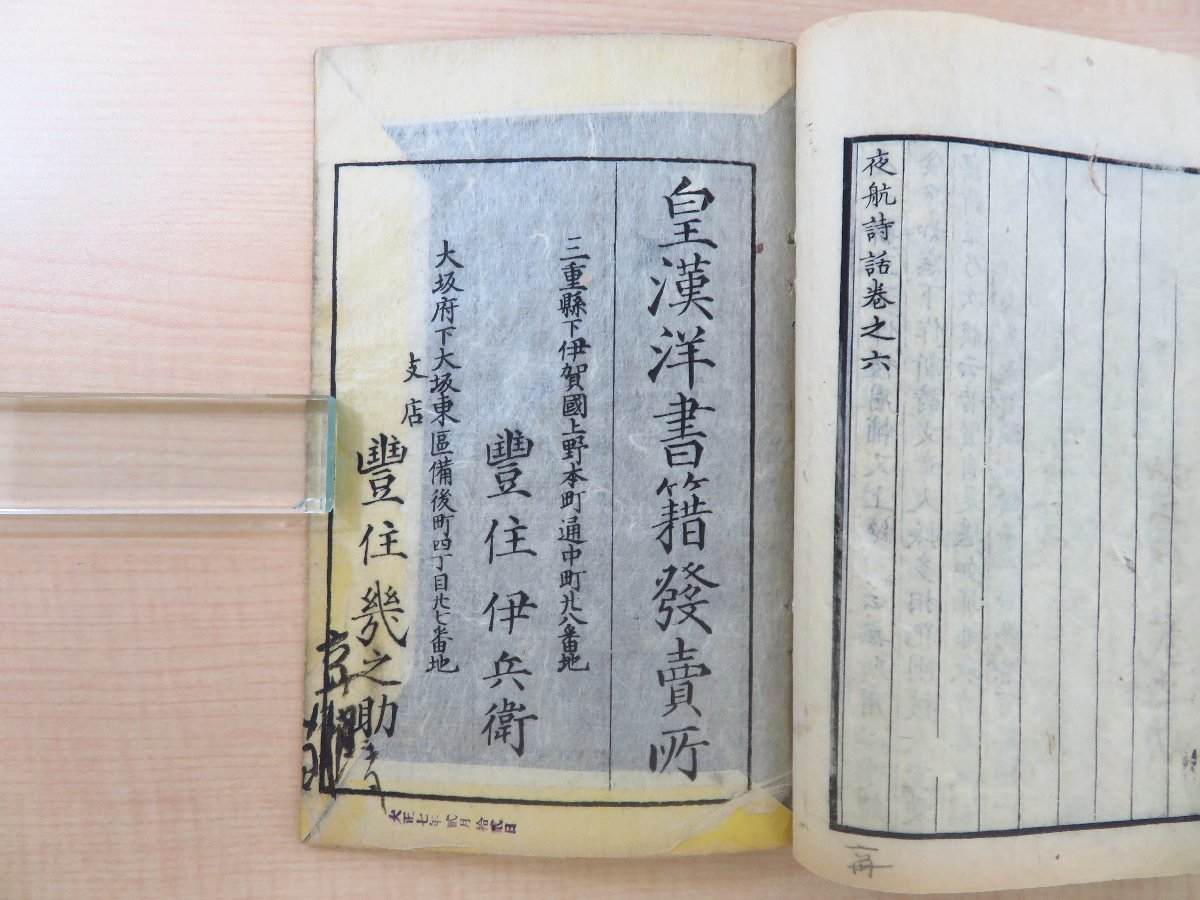 夜航詩話卷之六
皇漢洋書籍發賣所
三重縣下伊賀國上野本町通中町廿八番地
豐住伊兵衛
大坂府下大坂東區備後町四丁目廿七番地
支店
豐住幾之助
大正七年貳月拾貳日